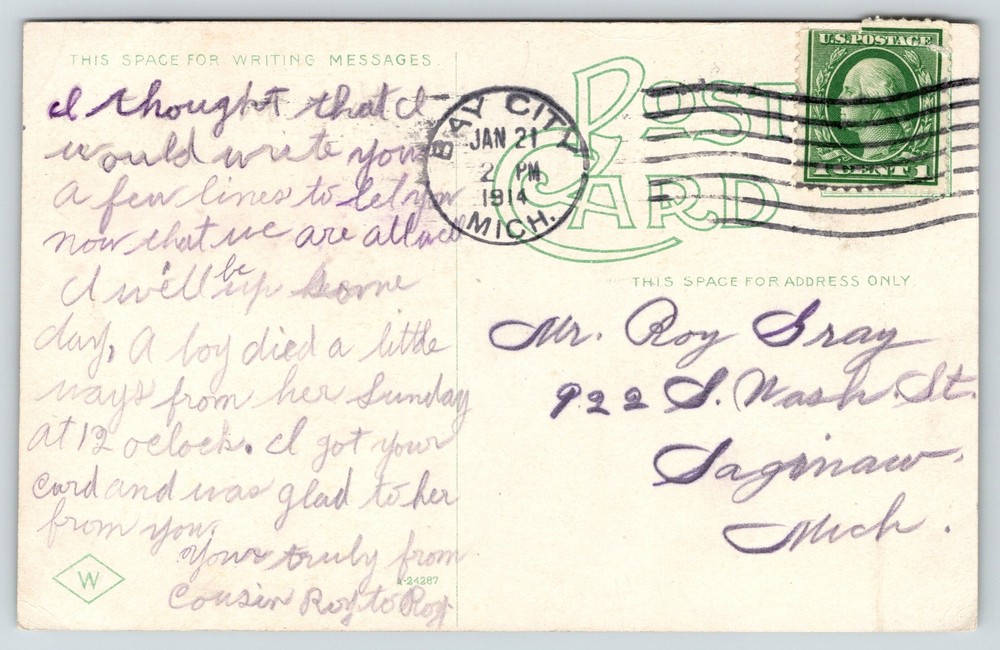 THIS SPACE FOR WRITING MESSAGES
I thought that I
would write you
a few lines to let you
now that we are
I will be up some
day, A boy died a little
ways from her Sunday
at 12 oclock. I got your
card and was glad to her
from you.
Your truly from
Cousin Roy to Roy
W
A-24287
POST CARD
BAY CITY
JAN 21
2 PM
1914
MICH.
U.S. POSTAGE
1 CENT 1
THIS SPACE FOR ADDRESS ONLY
Mr. Roy Gray
922 S. Wash. St.
Saginaw.
Mich.